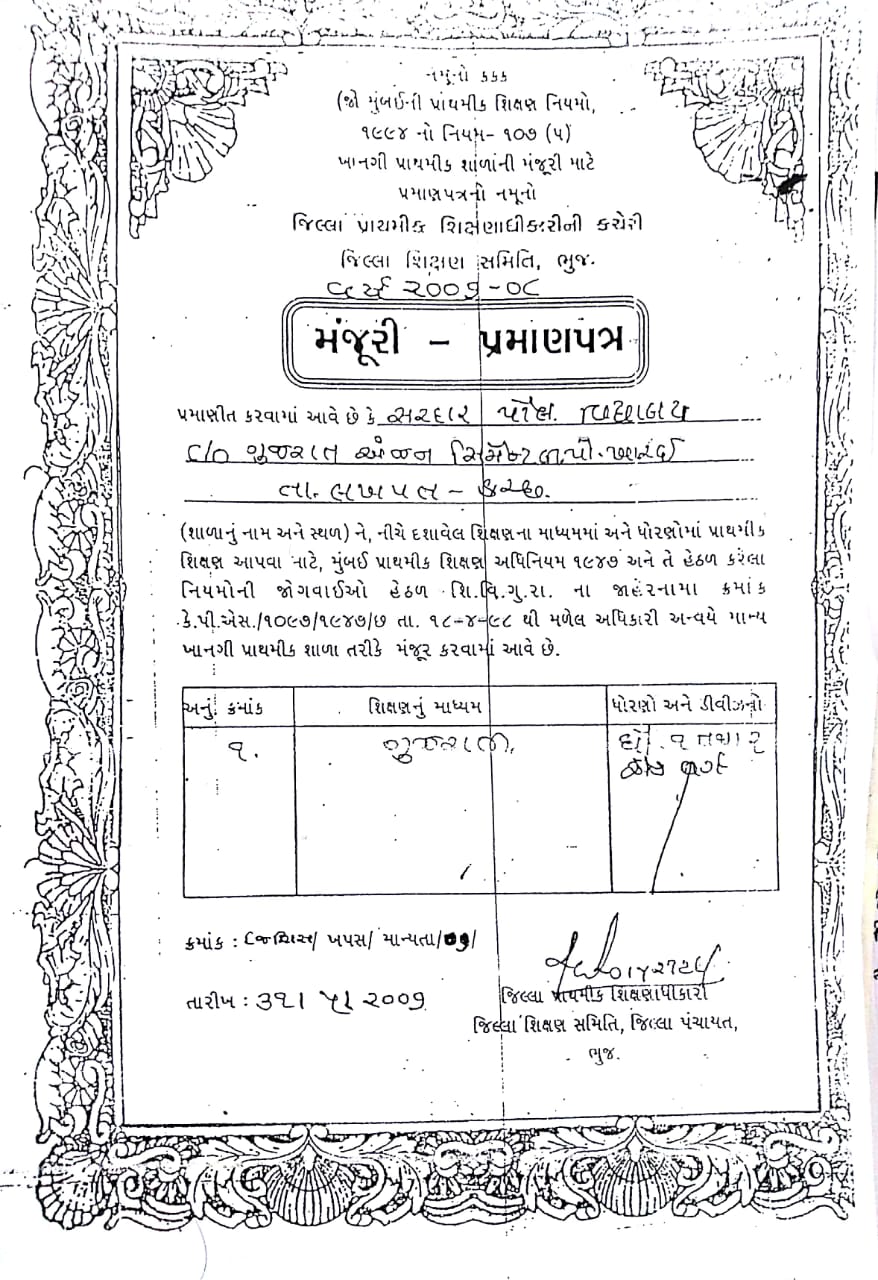 નમૂનો કકક
(જો મુંબઈની પ્રાથમીક શિક્ષણ નિયમો,
૧૯૯૪ નો નિયમ- ૧૦૭ (૫)
ખાનગી પ્રાથમીક શાળાની મંજૂરી માટે
પ્રમાણપત્રનો નમૂનો
જિલ્લા પ્રાથમીક શિક્ષણાધીકારીની કચેરી
જિલ્લા શિક્ષણ સમિતિ, ભુજ.
વર્ષ ૨૦૦૭-૦૮
મંજૂરી - પ્રમાણપત્ર
પ્રમાણીત કરવામાં આવે છે કે સરદાર પટેલ વિદ્યાલય
C/o ગુજરાત અંજન સિમેન્ટ
તા. લખપત - કચ્છ.
(શાળાનું નામ અને સ્થળ) ને, નીચે દશાવેલ શિક્ષણના માધ્યમમાં અને ધોરણોમાં પ્રાથમીક
શિક્ષણ આપવા માટે, મુંબઈ પ્રાથમીક શિક્ષણ અધિનિયમ ૧૯૪૭ અને તે હેઠળ કરેલા
નિયમોની જોગવાઈઓ હેઠળ શિ.વિ.ગુ.રા. ના જાહેરનામા ક્રમાંક
કે.પી.એસ./૧૦૯૭/૧૯૪૭/છ તા. ૧૮-૪-૯૮ થી મળેલ અધિકારી અન્વયે માન્ય
ખાનગી પ્રાથમીક શાળા તરીકે મંજૂર કરવામાં આવે છે.
અનું ક્રમાંક શિક્ષણનું માધ્યમ ધોરણો અને ડીવીઝનો
૧. ગુજરાતી. ધો. ૧
વર્ગ
ક્રમાંક : જિશિસ/ ખપસ/ માન્યતા/૦૭/
તારીખ : ૩૧/ ૫/ ૨૦૦૭
જિલ્લા પ્રાથમીક શિક્ષણાધીકારી
જિલ્લા શિક્ષણ સમિતિ, જિલ્લા પંચાયત,
ભુજ.